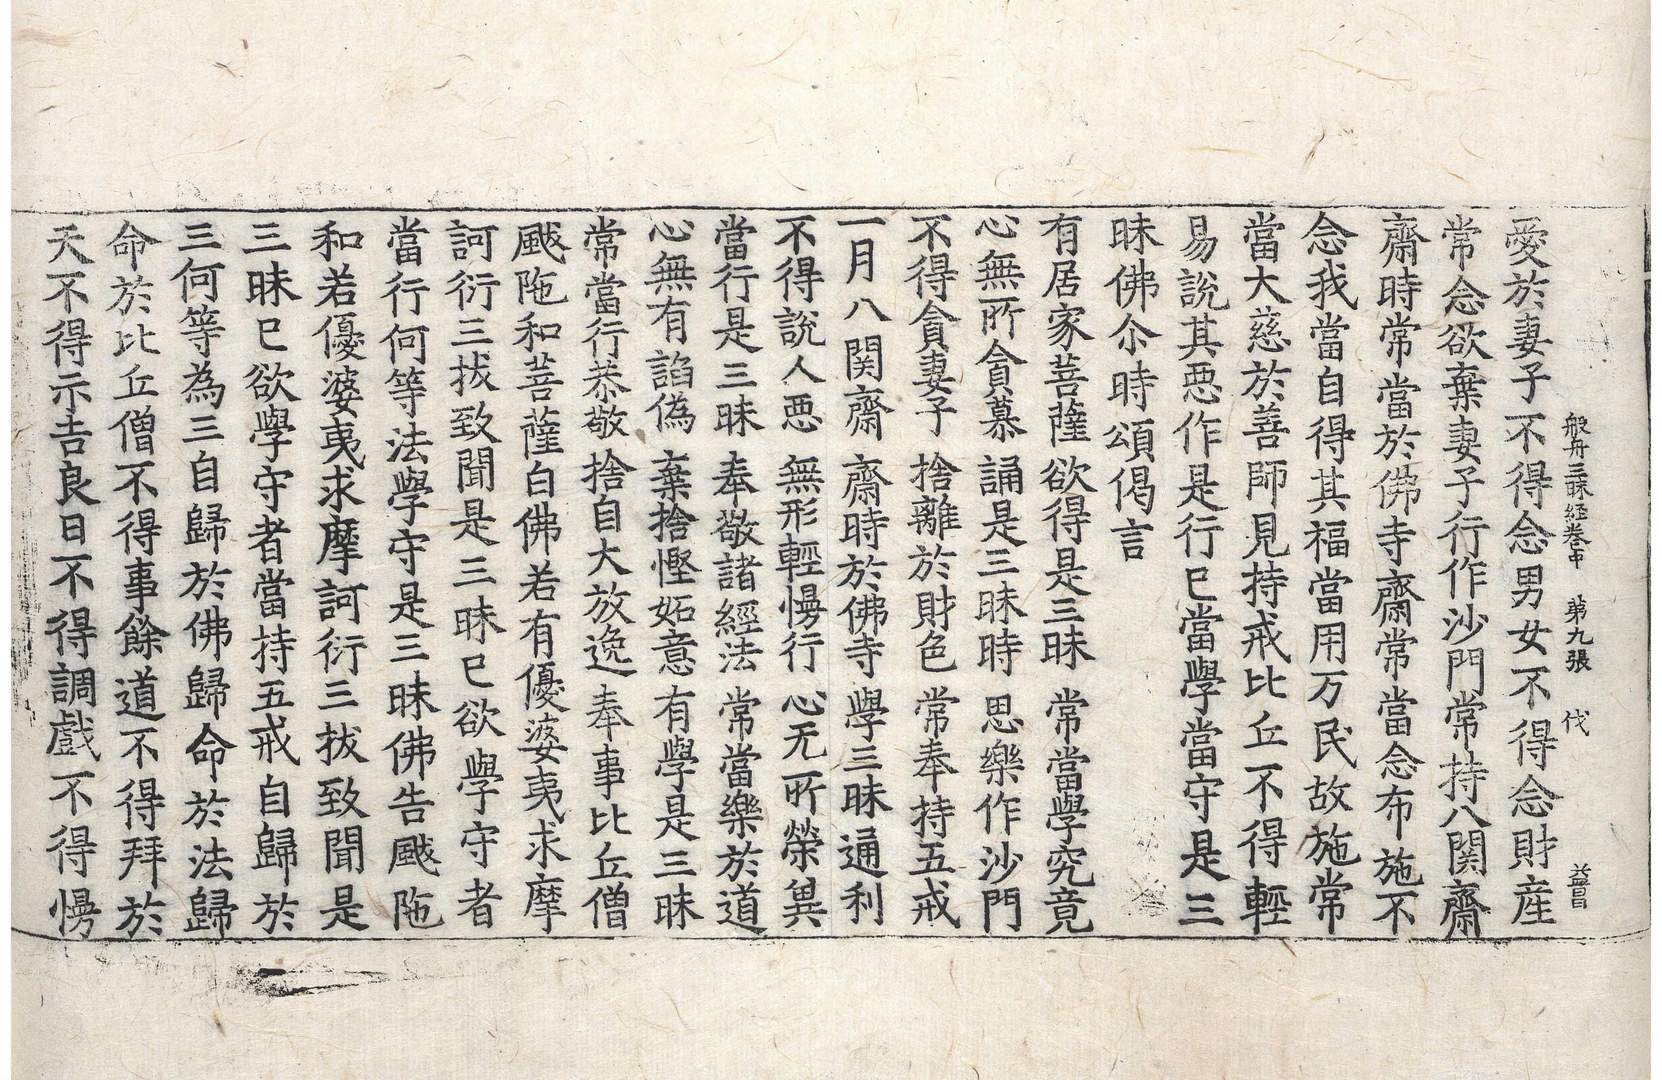 般舟三昧経卷中　第九張　伐
愛於妻子不得念男女不得念財産
常念欲棄妻子行作沙門常持八関齋
齋時常當於佛寺齋常當念布施不
念我當自得其福當用万民故施常
當大慈於善師見持戒比丘不得輕
易說其悪作是行已當學當守是三
昧佛尒時頌偈言
有居家菩薩　欲得是三昧　常當學究竟
心無所貪慕　誦是三昧時　思樂作沙門
不得貪妻子　捨離於財色　常奉持五戒
一月八関齋　齋時於佛寺　學三昧通利
不得說人悪　無形輕慢行　心无所榮異
當行是三昧　奉敬諸經法　常當樂於道
心無有諂偽　棄捨慳妬意　有學是三昧
常當行恭敬　捨自大放逸　奉事比丘僧
颰陁和菩薩白佛若有優婆夷求摩
訶衍三拔致聞是三昧已欲學守者
當行何等法學守是三昧佛告颰陁
和若優婆夷求摩訶衍三拔致聞是
三昧已欲學守者當持五戒自歸於
三何等為三自歸於佛歸命於法歸
命於比丘僧不得事餘道不得拜於
天不得示吉良日不得調戲不得慢